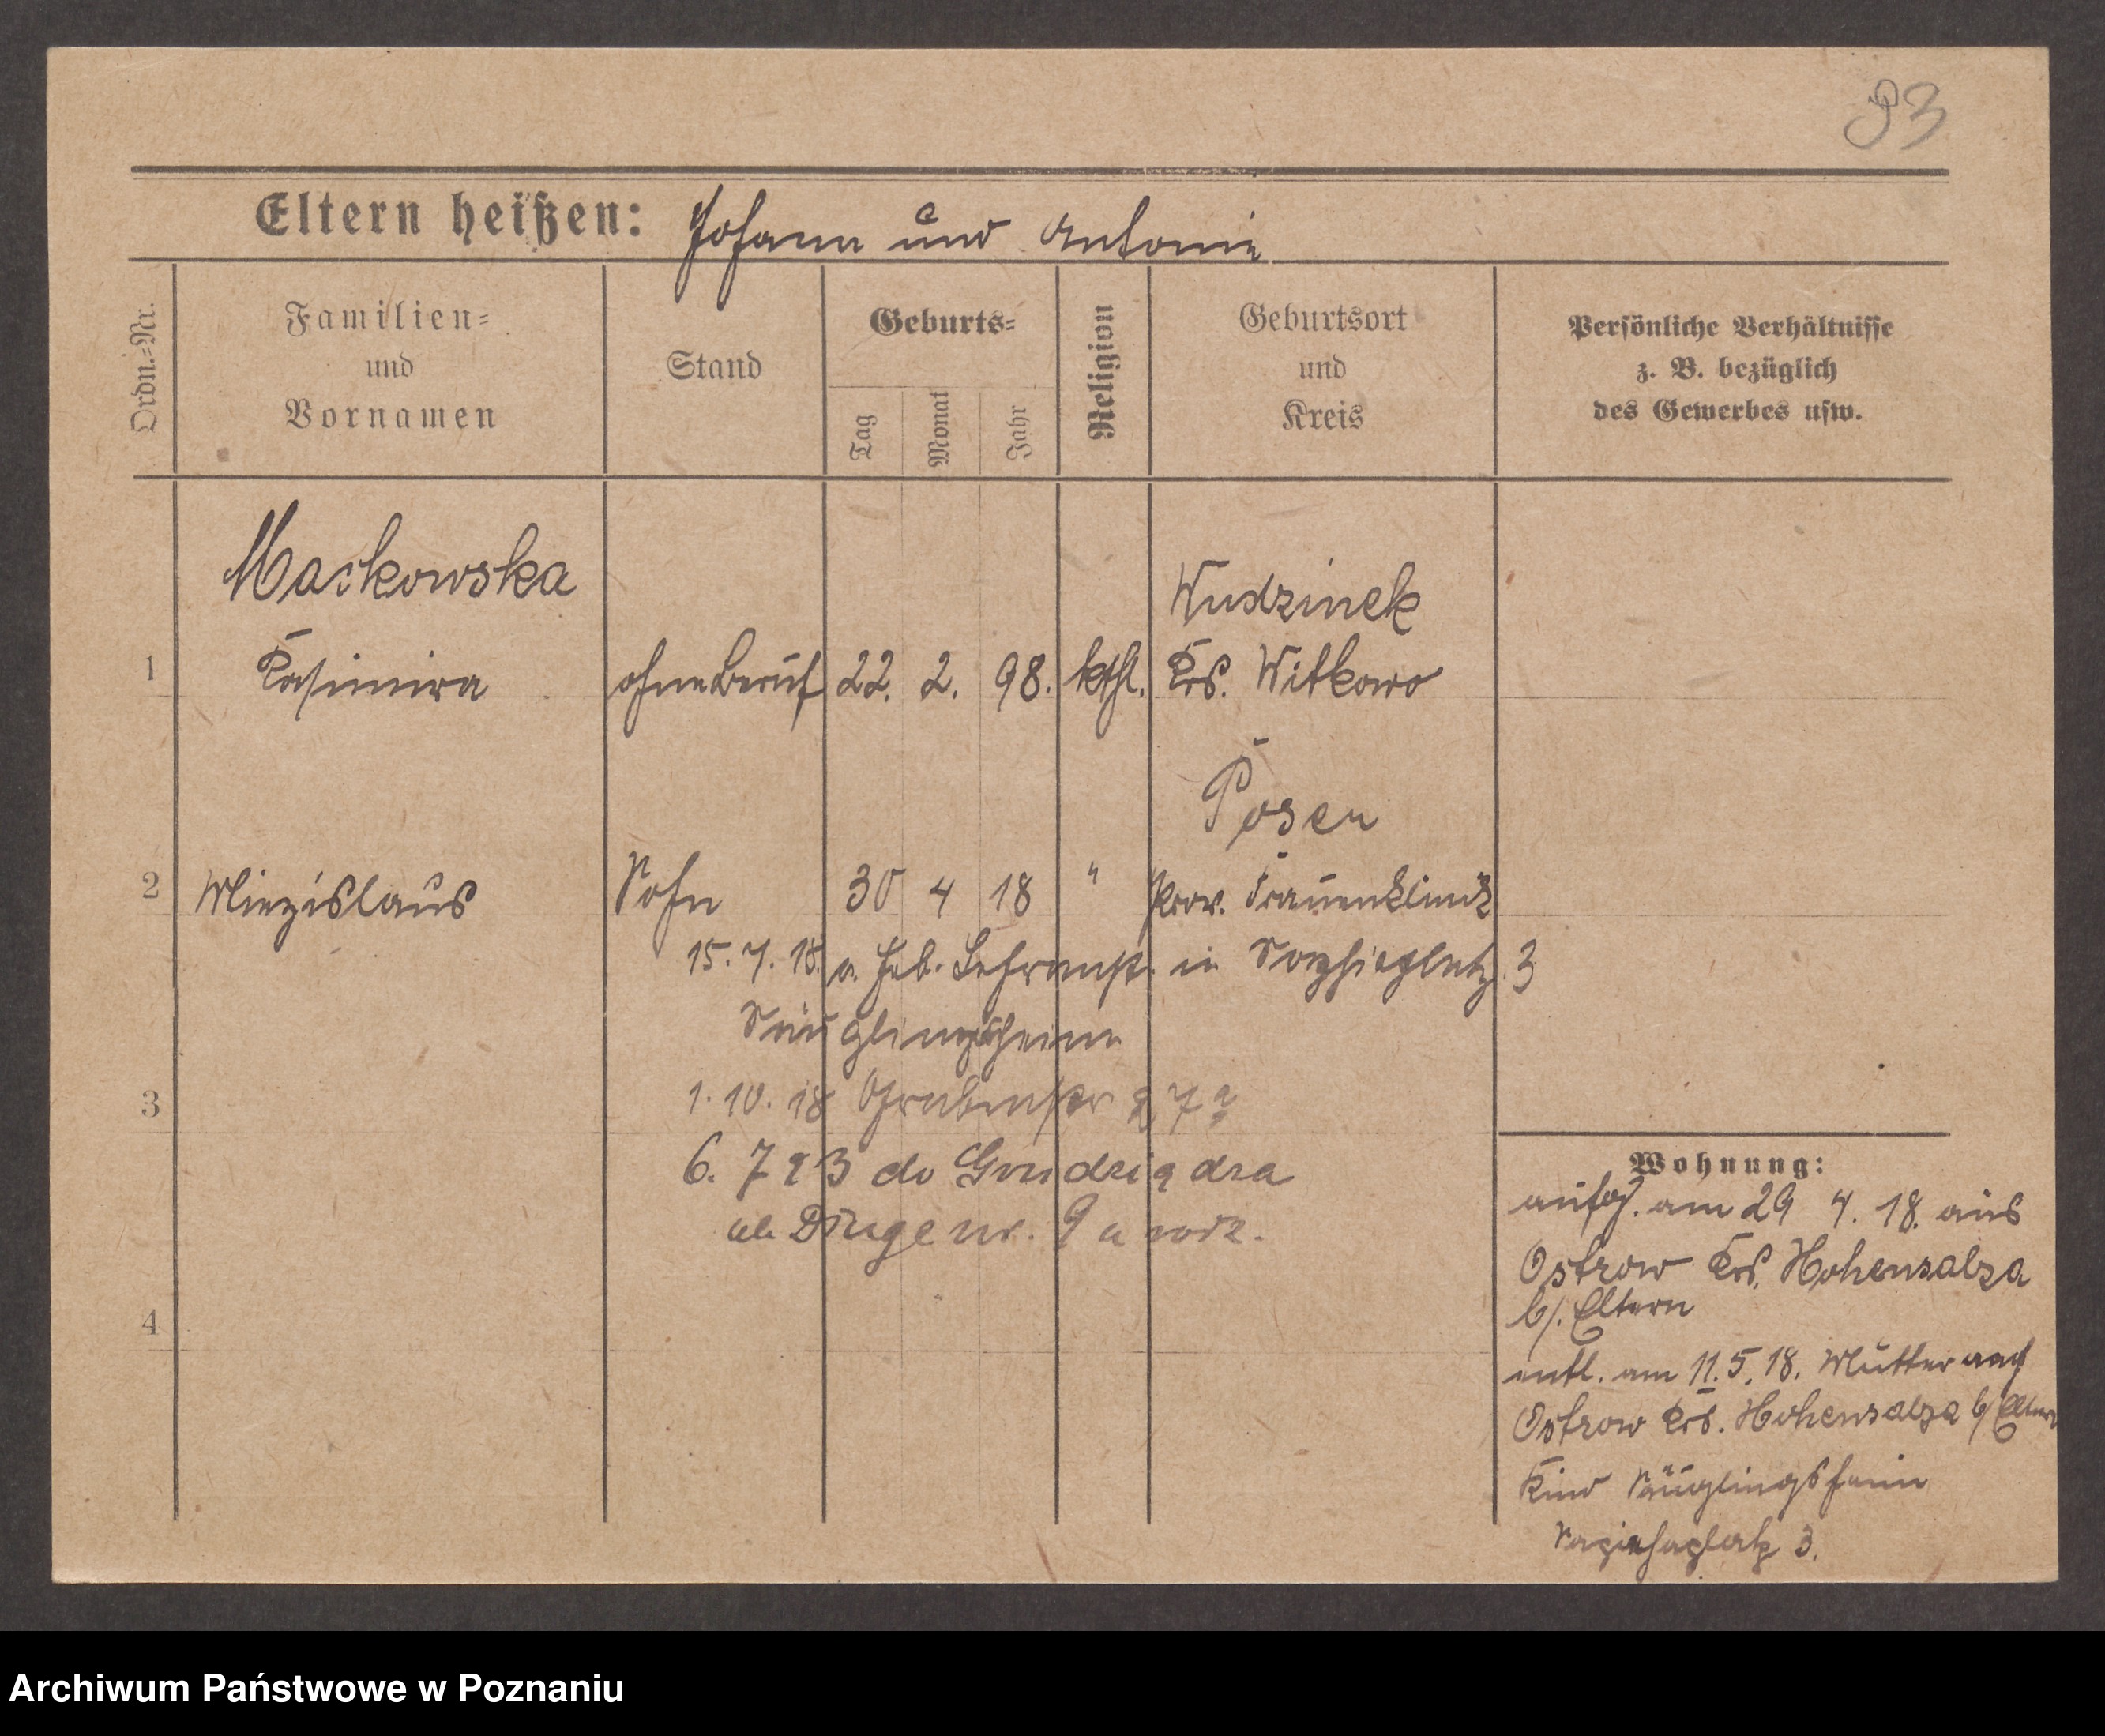 93
Eltern heißen: Johann und Antonie
Ordn.=Nr.
Familien=
und
Vornamen
Stand
Geburts=
Tag
Monat
Jahr
Religion
Geburtsort
und
Kreis
Persönliche Verhältnisse
z. B. bezüglich
des Gewerbes usw.
Maćkowska
Wudzinek
1 Kasimira ohne Beruf 22. 2. 98. kthl. Krs. Witkowo
Posen
2 Miezislaus Sohn 30 4 18 " Prov. Frauenklinik
15. 7. 18. a. Heb. Lehranst. in 3
Säuglingsheim
3 1. 10. 18
6. 7 23 do Grudziądza
4
Wohnung:
aufg. am 29 4. 18. aus
Ostrow Krs. Hohensalza
b/. Eltern
entl. am 11. 5. 18. Mutter nach
Ostrow Krs. Hohensalza b/ Eltern
Kind Säuglingsheim
3.
Archiwum Państwowe w Poznaniu